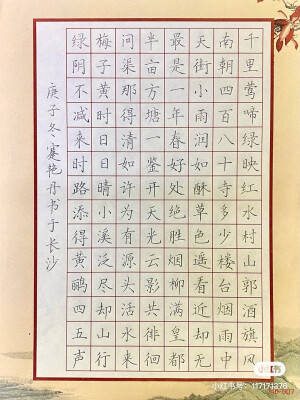 千里莺啼绿映红水村山郭酒旗风
南朝四百八十寺多少楼台烟雨中
天街小雨润如酥草色遥看近却无
最是一年春好处绝胜烟柳满皇都
半亩方塘一鉴开天光云影共徘徊
问渠那得清如许为有源头活水来
梅子黄时日日晴小溪泛尽却山行
绿阴不减来时路添得黄鹂四五声
庚子冬蹇艳丹书于长沙
小红书
小红书号：117171376